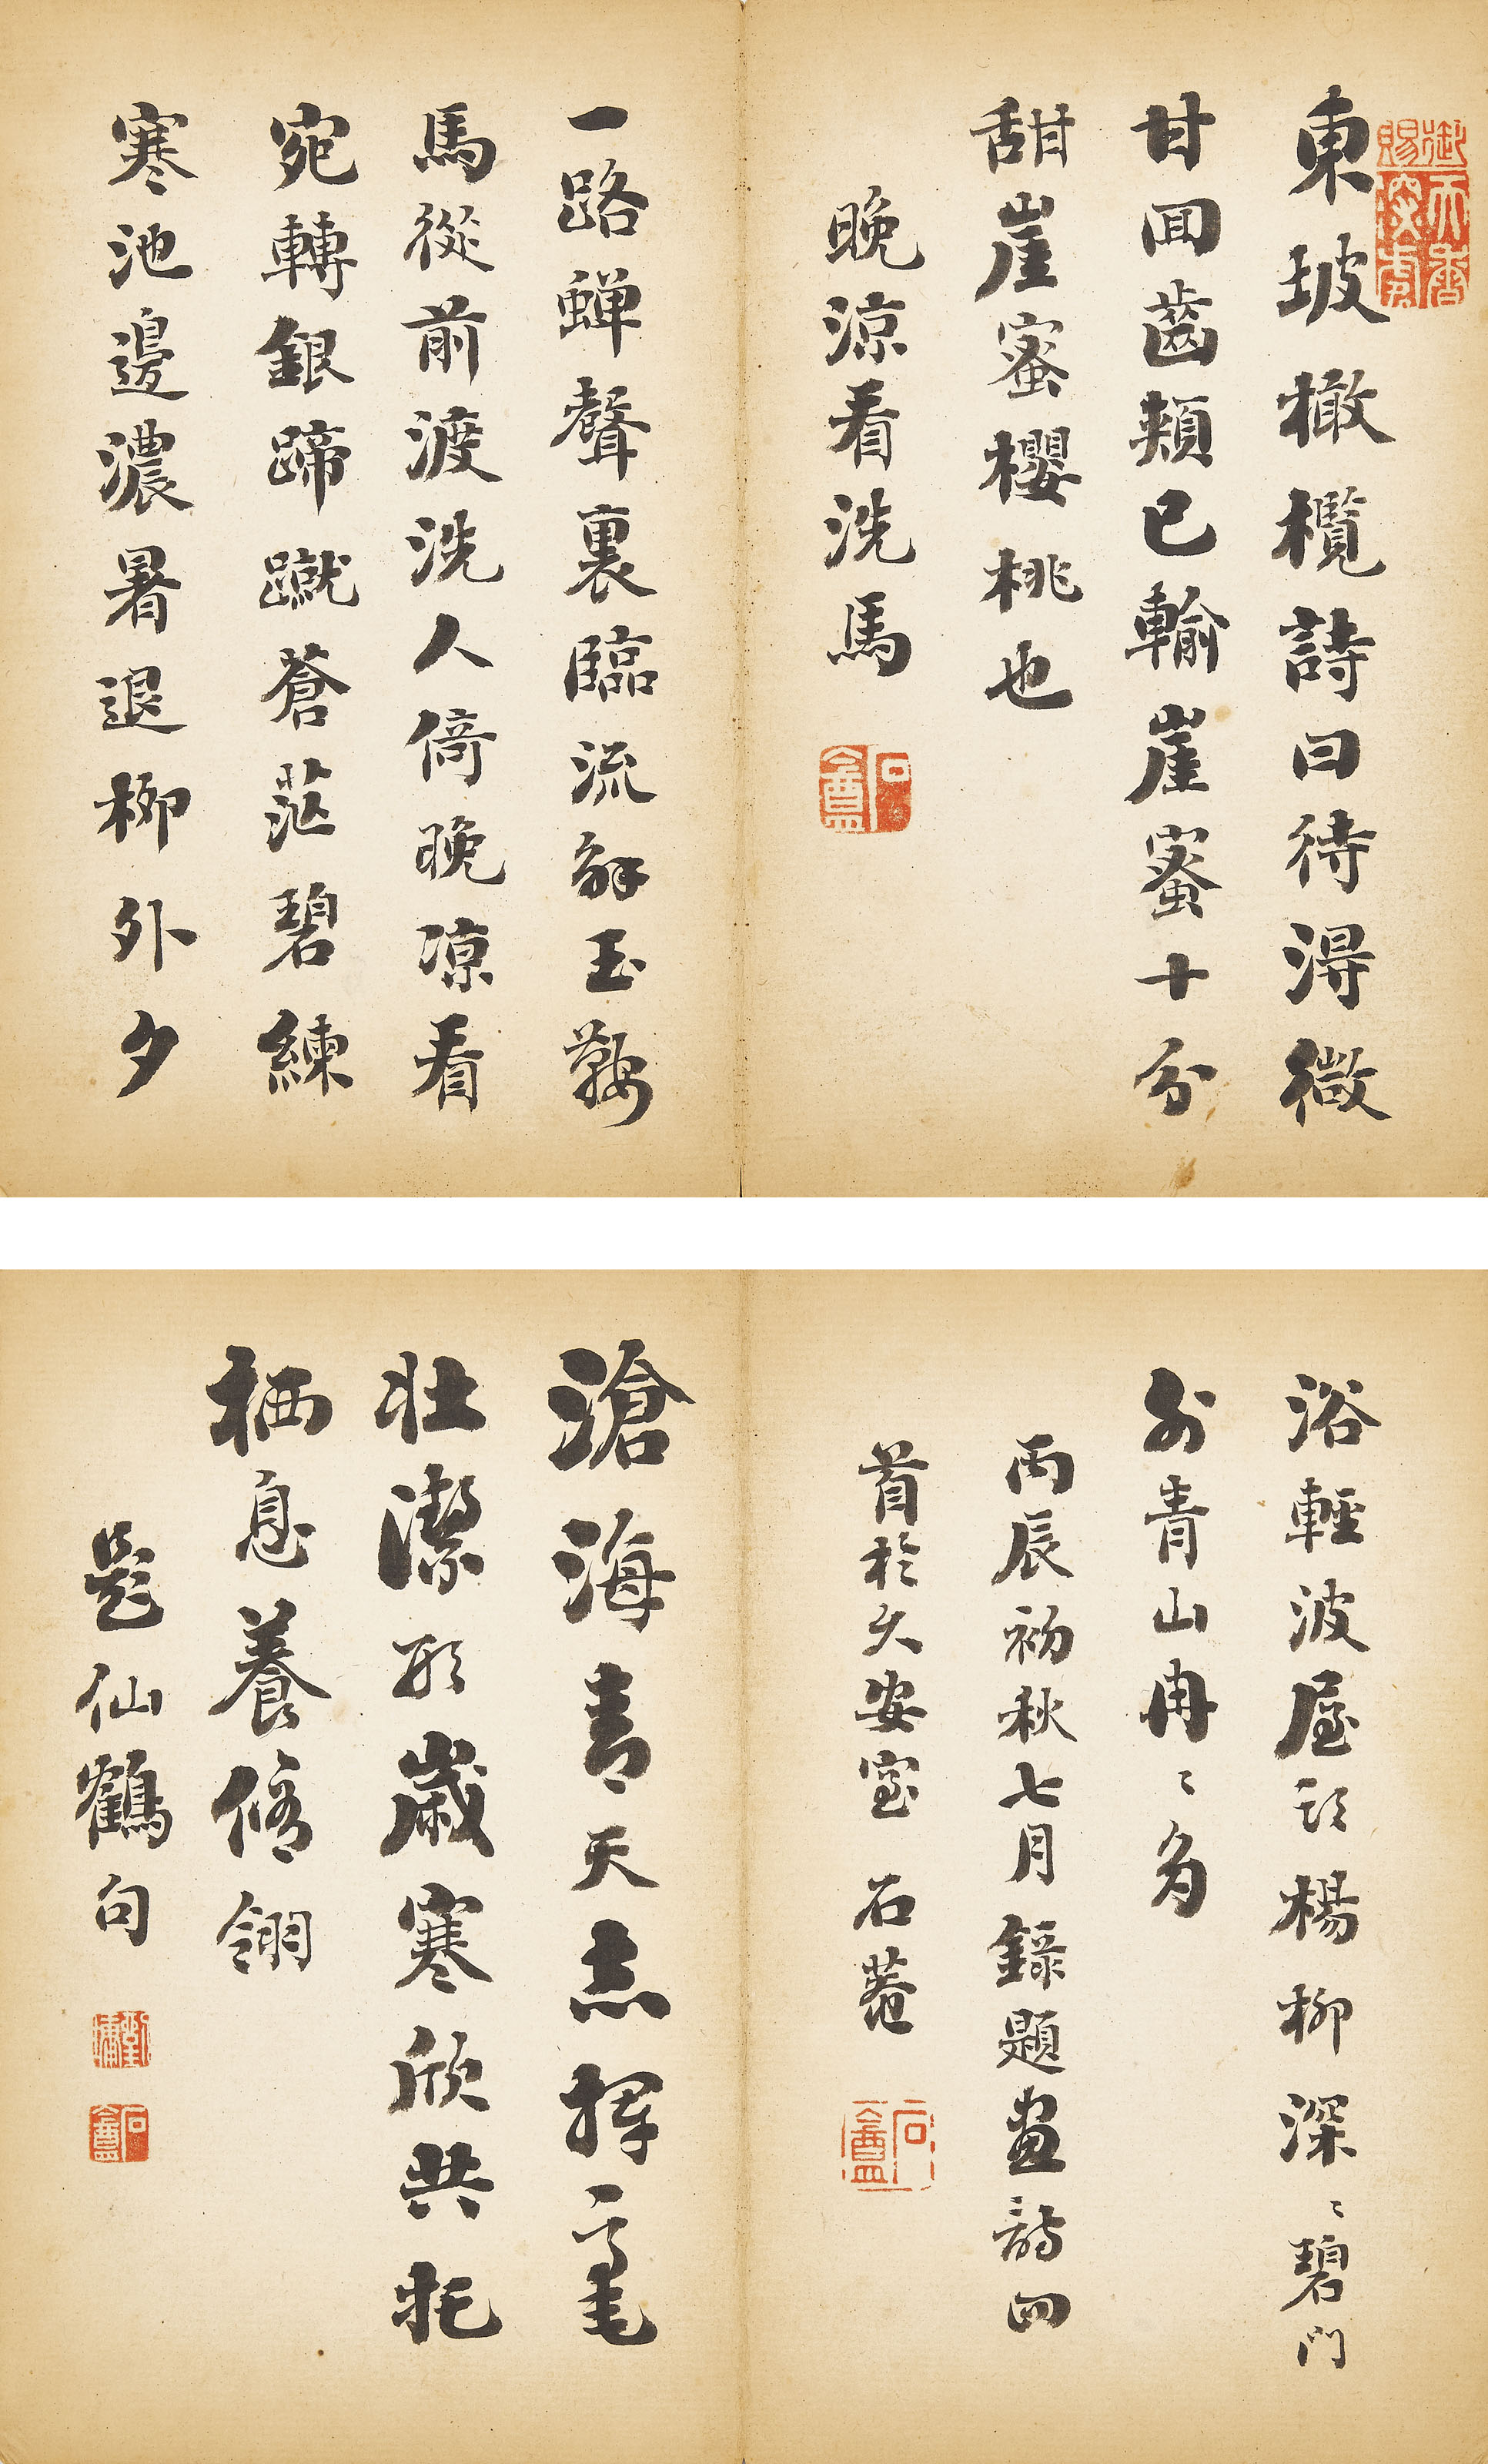 御賜天香深處
東坡橄欖詩曰待得微
甘回齒頰已輸崖蜜十分
甜崖蜜櫻桃也
晚涼看洗馬
石盦
一路蟬聲裏臨流解玉鞍
馬從前渡洗人倚晚凉看
宛轉銀蹄蹴蒼茫碧練
寒池邊濃暑退柳外夕
浴輕波屋頭楊柳深〻碧門
外青山冉〻多
丙辰初秋七月錄題畫詩四
首於久安室 石菴
石盦
滄海青天志揮毫
壯潔形歲寒欣共托
栖息養脩翎
題仙鶴句
劉墉
石盦